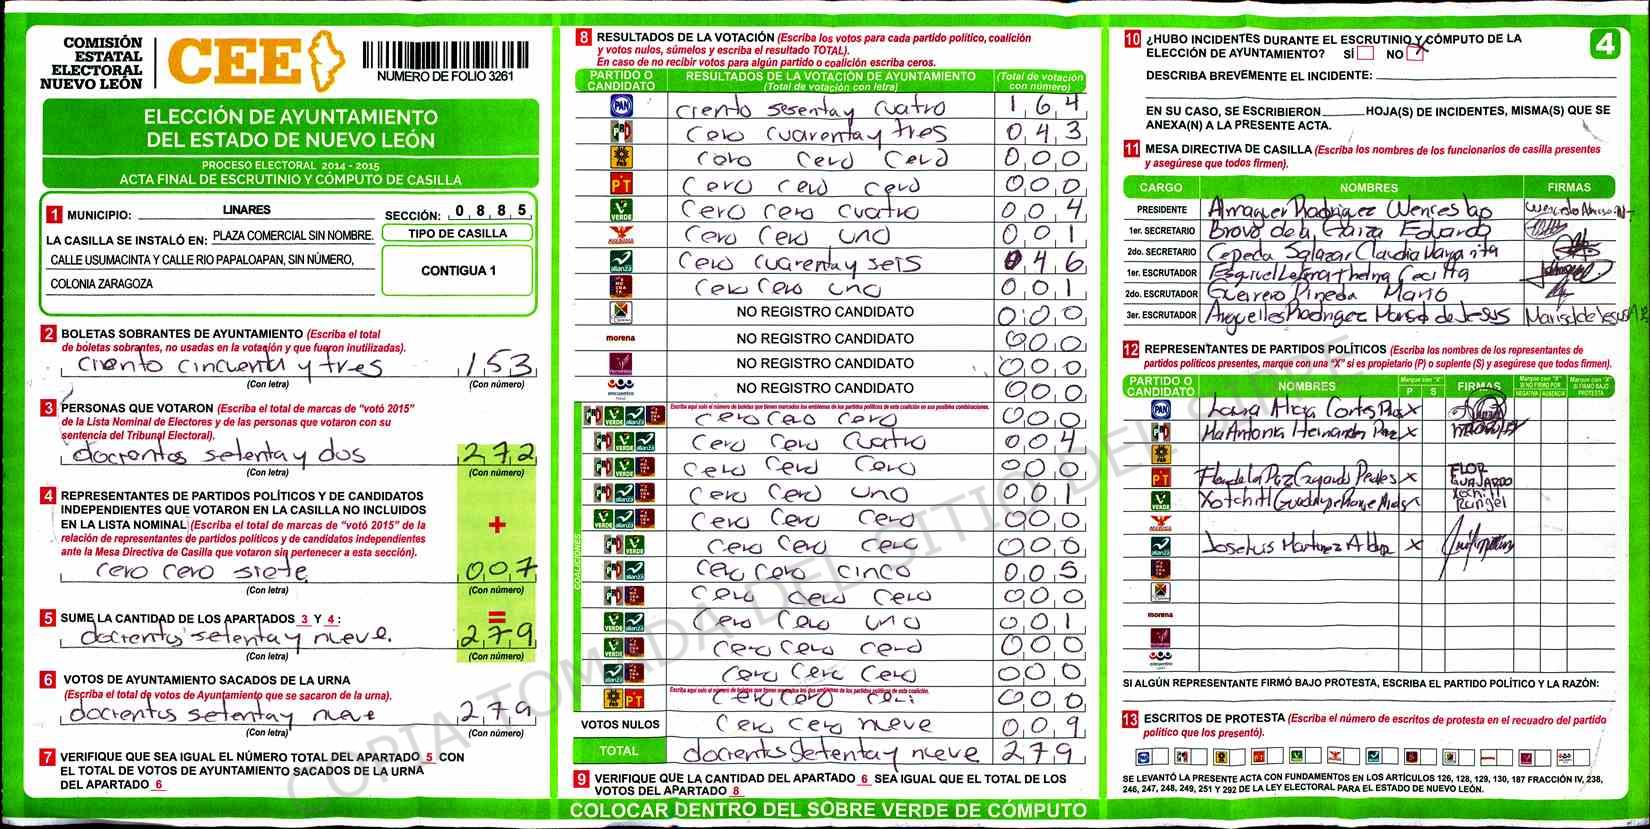 COMISIÓN
ESTATAL
ELECTORAL
NUEVO LEÓN
CEE
NUMERO DE FOLIO 3261
ELECCIÓN DE AYUNTAMIENTO
DEL ESTADO DE NUEVO LEÓN
PROCESO ELECTORAL 2014 - 2015
ACTA FINAL DE ESCRUTINIO Y CÓMPUTO DE CASILLA
1 MUNICIPIO: LINARES SECCIÓN: 0 8 8 5
LA CASILLA SE INSTALÓ EN: PLAZA COMERCIAL SIN NOMBRE.
CALLE USUMACINTA Y CALLE RIO PAPALOAPAN, SIN NÚMERO,
COLONIA ZARAGOZA
TIPO DE CASILLA
CONTIGUA 1
2 BOLETAS SOBRANTES DE AYUNTAMIENTO (Escriba el total
de boletas sobrantes, no usadas en la votación y que fueron inutilizadas).
ciento cincuenta y tres 153
(Con letra) (Con número)
3 PERSONAS QUE VOTARON (Escriba el total de marcas de "votó 2015"
de la Lista Nominal de Electores y de las personas que votaron con su
sentencia del Tribunal Electoral).
docientos setenta y dos 272
(Con letra) (Con número)
4 REPRESENTANTES DE PARTIDOS POLÍTICOS Y DE CANDIDATOS
INDEPENDIENTES QUE VOTARON EN LA CASILLA NO INCLUIDOS
EN LA LISTA NOMINAL (Escriba el total de marcas de "votó 2015" de la
relación de representantes de partidos políticos y de candidatos independientes
ante la Mesa Directiva de Casilla que votaron sin pertenecer a esta sección).
+
cero cero siete 007
(Con letra) (Con número)
=
5 SUME LA CANTIDAD DE LOS APARTADOS 3 Y 4:
docientos setenta y nueve. 279
(Con letra) (Con número)
6 VOTOS DE AYUNTAMIENTO SACADOS DE LA URNA
(Escriba el total de votos de Ayuntamiento que se sacaron de la urna).
docientos setenta y nueve 279
(Con letra) (Con número)
7 VERIFIQUE QUE SEA IGUAL EL NÚMERO TOTAL DEL APARTADO 5 CON
EL TOTAL DE VOTOS DE AYUNTAMIENTO SACADOS DE LA URNA
DEL APARTADO 6
8 RESULTADOS DE LA VOTACIÓN (Escriba los votos para cada partido político, coalición
y votos nulos, súmelos y escriba el resultado TOTAL).
En caso de no recibir votos para algún partido o coalición escriba ceros.
PARTIDO O CANDIDATO RESULTADOS DE LA VOTACIÓN DE AYUNTAMIENTO (Total de votación con letra) (Total de votación con número)
PAN ciento sesenta y cuatro 164
PRI cero cuarenta y tres 043
PRD cero cero cero 000
PT cero cero cero 000
VERDE cero cero cuatro 004
cero cero uno 001
alianza cero cuarenta y seis 046
cero cero uno 001
NO REGISTRO CANDIDATO 000
morena NO REGISTRO CANDIDATO 000
NO REGISTRO CANDIDATO 000
encuentro NO REGISTRO CANDIDATO 000
COALICIONES
Escriba aquí solo el número de boletas que tienen marcados los emblemas de los partidos políticos de esta coalición en sus posibles combinaciones.
cero cero cero 000
cero cero cuatro 004
cero cero cero 000
cero cero uno 001
cero cero cero 000
cero cero cero 000
cero cero cinco 005
cero cero cero 000
cero cero uno 001
cero cero cero 000
cero cero cero 000
Escriba aquí solo el número de boletas que tienen marcados los dos emblemas de los partidos políticos de esta coalición.
PRD PT cero cero 000
VOTOS NULOS cero cero nueve 009
TOTAL docientos setenta y nueve 279
9 VERIFIQUE QUE LA CANTIDAD DEL APARTADO 6 SEA IGUAL QUE EL TOTAL DE LOS
VOTOS DEL APARTADO 8
COLOCAR DENTRO DEL SOBRE VERDE DE CÓMPUTO
10 ¿HUBO INCIDENTES DURANTE EL ESCRUTINIO Y CÓMPUTO DE LA
ELECCIÓN DE AYUNTAMIENTO? SÍ NO X
4
DESCRIBA BREVEMENTE EL INCIDENTE:
EN SU CASO, SE ESCRIBIERON HOJA(S) DE INCIDENTES, MISMA(S) QUE SE
ANEXA(N) A LA PRESENTE ACTA.
11 MESA DIRECTIVA DE CASILLA (Escriba los nombres de los funcionarios de casilla presentes
y asegúrese que todos firmen).
CARGO NOMBRES FIRMAS
PRESIDENTE Almaguer Rodriguez Wenceslao
1er. SECRETARIO Bravo de la Garza Eduardo
2do. SECRETARIO Cepeda Salazar Claudia Margarita
1er. ESCRUTADOR Esquivel Thelma Cecilia
2do. ESCRUTADOR Guerrero Pineda Mario
3er. ESCRUTADOR Arguelles Rodriguez de Jesus
12 REPRESENTANTES DE PARTIDOS POLÍTICOS (Escriba los nombres de los representantes de
partidos políticos presentes, marque con una "X" si es propietario (P) o suplente (S) y asegúrese que todos firmen).
PARTIDO O CANDIDATO NOMBRES Marque con "X" P S FIRMAS Marque con "X" SI NO FIRMÓ POR NEGATIVA AUSENCIA Marque con "X" SI FIRMÓ BAJO PROTESTA
PAN Alicia Cortes X
Ma Antonia Hernandez X
PT Flor de la Paz X FLOR GUAJARDO
VERDE Xotchitl X Xochitl Rangel
Jose Luis Martinez X
morena
encuentro
SI ALGÚN REPRESENTANTE FIRMÓ BAJO PROTESTA, ESCRIBA EL PARTIDO POLÍTICO Y LA RAZÓN:
13 ESCRITOS DE PROTESTA (Escriba el número de escritos de protesta en el recuadro del partido
político que los presentó).
SE LEVANTÓ LA PRESENTE ACTA CON FUNDAMENTOS EN LOS ARTÍCULOS 126, 128, 129, 130, 187 FRACCIÓN IV, 238,
246, 247, 248, 249, 251 Y 292 DE LA LEY ELECTORAL PARA EL ESTADO DE NUEVO LEÓN.
COPIA TOMADA DEL SITIO DEL SIPRE